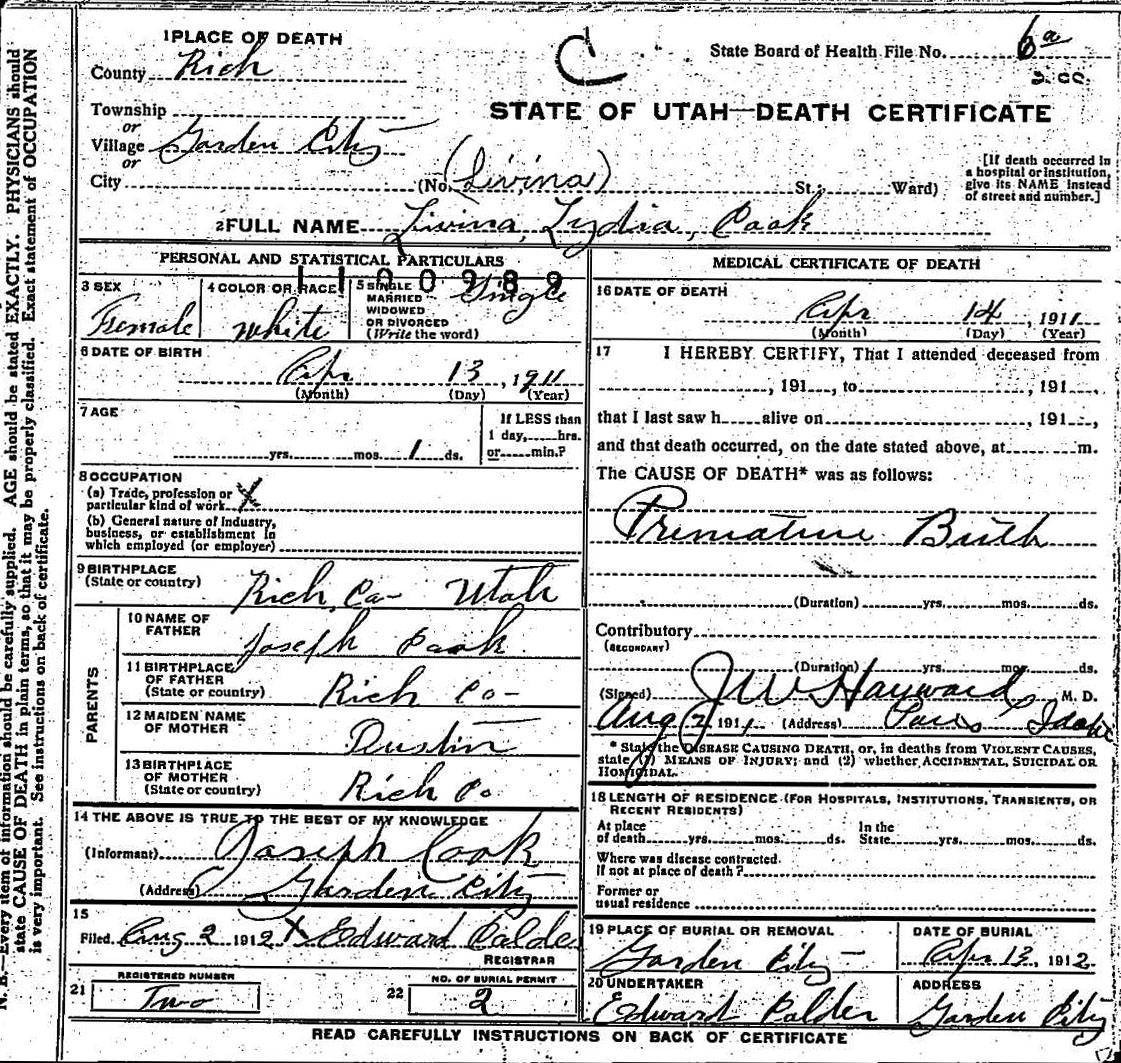 N. B.—Every item of information should be carefully supplied. AGE should be stated EXACTLY. PHYSICIANS should
state CAUSE OF DEATH in plain terms, so that it may be properly classified. Exact statement of OCCUPATION
is very important. See instructions on back of certificate.
1 PLACE OF DEATH
County Rich
State Board of Health File No. 6a
C
STATE OF UTAH—DEATH CERTIFICATE
Township
or
Village Garden City
or
City (No. (Livina) St.; Ward)
[If death occurred in
a hospital or institution,
give its NAME instead
of street and number.]
2 FULL NAME Livina, Lydia, Cook
PERSONAL AND STATISTICAL PARTICULARS
1100989
3 SEX
Female
4 COLOR OR RACE
White
5 SINGLE
MARRIED
WIDOWED
OR DIVORCED
(Write the word)
Single
6 DATE OF BIRTH
Apr 13, 1911
(Month) (Day) (Year)
7 AGE
yrs. mos. 1 ds.
If LESS than
1 day, hrs.
or min.?
8 OCCUPATION
(a) Trade, profession or
particular kind of work X
(b) General nature of Industry,
business, or establishment in
which employed (or employer)
9 BIRTHPLACE
(State or country)
Rich, Co- Utah
PARENTS
10 NAME OF
FATHER
Joseph Cook
11 BIRTHPLACE
OF FATHER
(State or country)
Rich Co-
12 MAIDEN NAME
OF MOTHER
Dustin
13 BIRTHPLACE
OF MOTHER
(State or country)
Rich Co
14 THE ABOVE IS TRUE TO THE BEST OF MY KNOWLEDGE
(Informant) Joseph Cook
(Address) Garden City
15
Filed Aug 2 1912 X Edward Calder
REGISTRAR
21 REGISTERED NUMBER
Two
22 NO. OF BURIAL PERMIT
2
MEDICAL CERTIFICATE OF DEATH
16 DATE OF DEATH
Apr 14, 1911
(Month) (Day) (Year)
17 I HEREBY CERTIFY, That I attended deceased from
, 191 , to , 191 ,
that I last saw h alive on , 191 ,
and that death occurred, on the date stated above, at m.
The CAUSE OF DEATH* was as follows:
Premature Birth
(Duration) yrs. mos. ds.
Contributory
(SECONDARY)
(Duration) yrs. mos. ds.
(Signed) J W Hayward M. D.
Aug 2 1911 (Address) Paris Idaho
* State the DISEASE CAUSING DEATH, or, in deaths from VIOLENT CAUSES,
state (1) MEANS OF INJURY; and (2) whether ACCIDENTAL, SUICIDAL OR
HOMICIDAL.
18 LENGTH OF RESIDENCE (FOR HOSPITALS, INSTITUTIONS, TRANSIENTS, OR
RECENT RESIDENTS)
At place
of death yrs. mos. ds.
In the
State yrs. mos. ds.
Where was disease contracted.
If not at place of death?
Former or
usual residence
19 PLACE OF BURIAL OR REMOVAL
Garden City
DATE OF BURIAL
Apr 13, 1912
20 UNDERTAKER
Edward Calder
ADDRESS
Garden City
READ CAREFULLY INSTRUCTIONS ON BACK OF CERTIFICATE